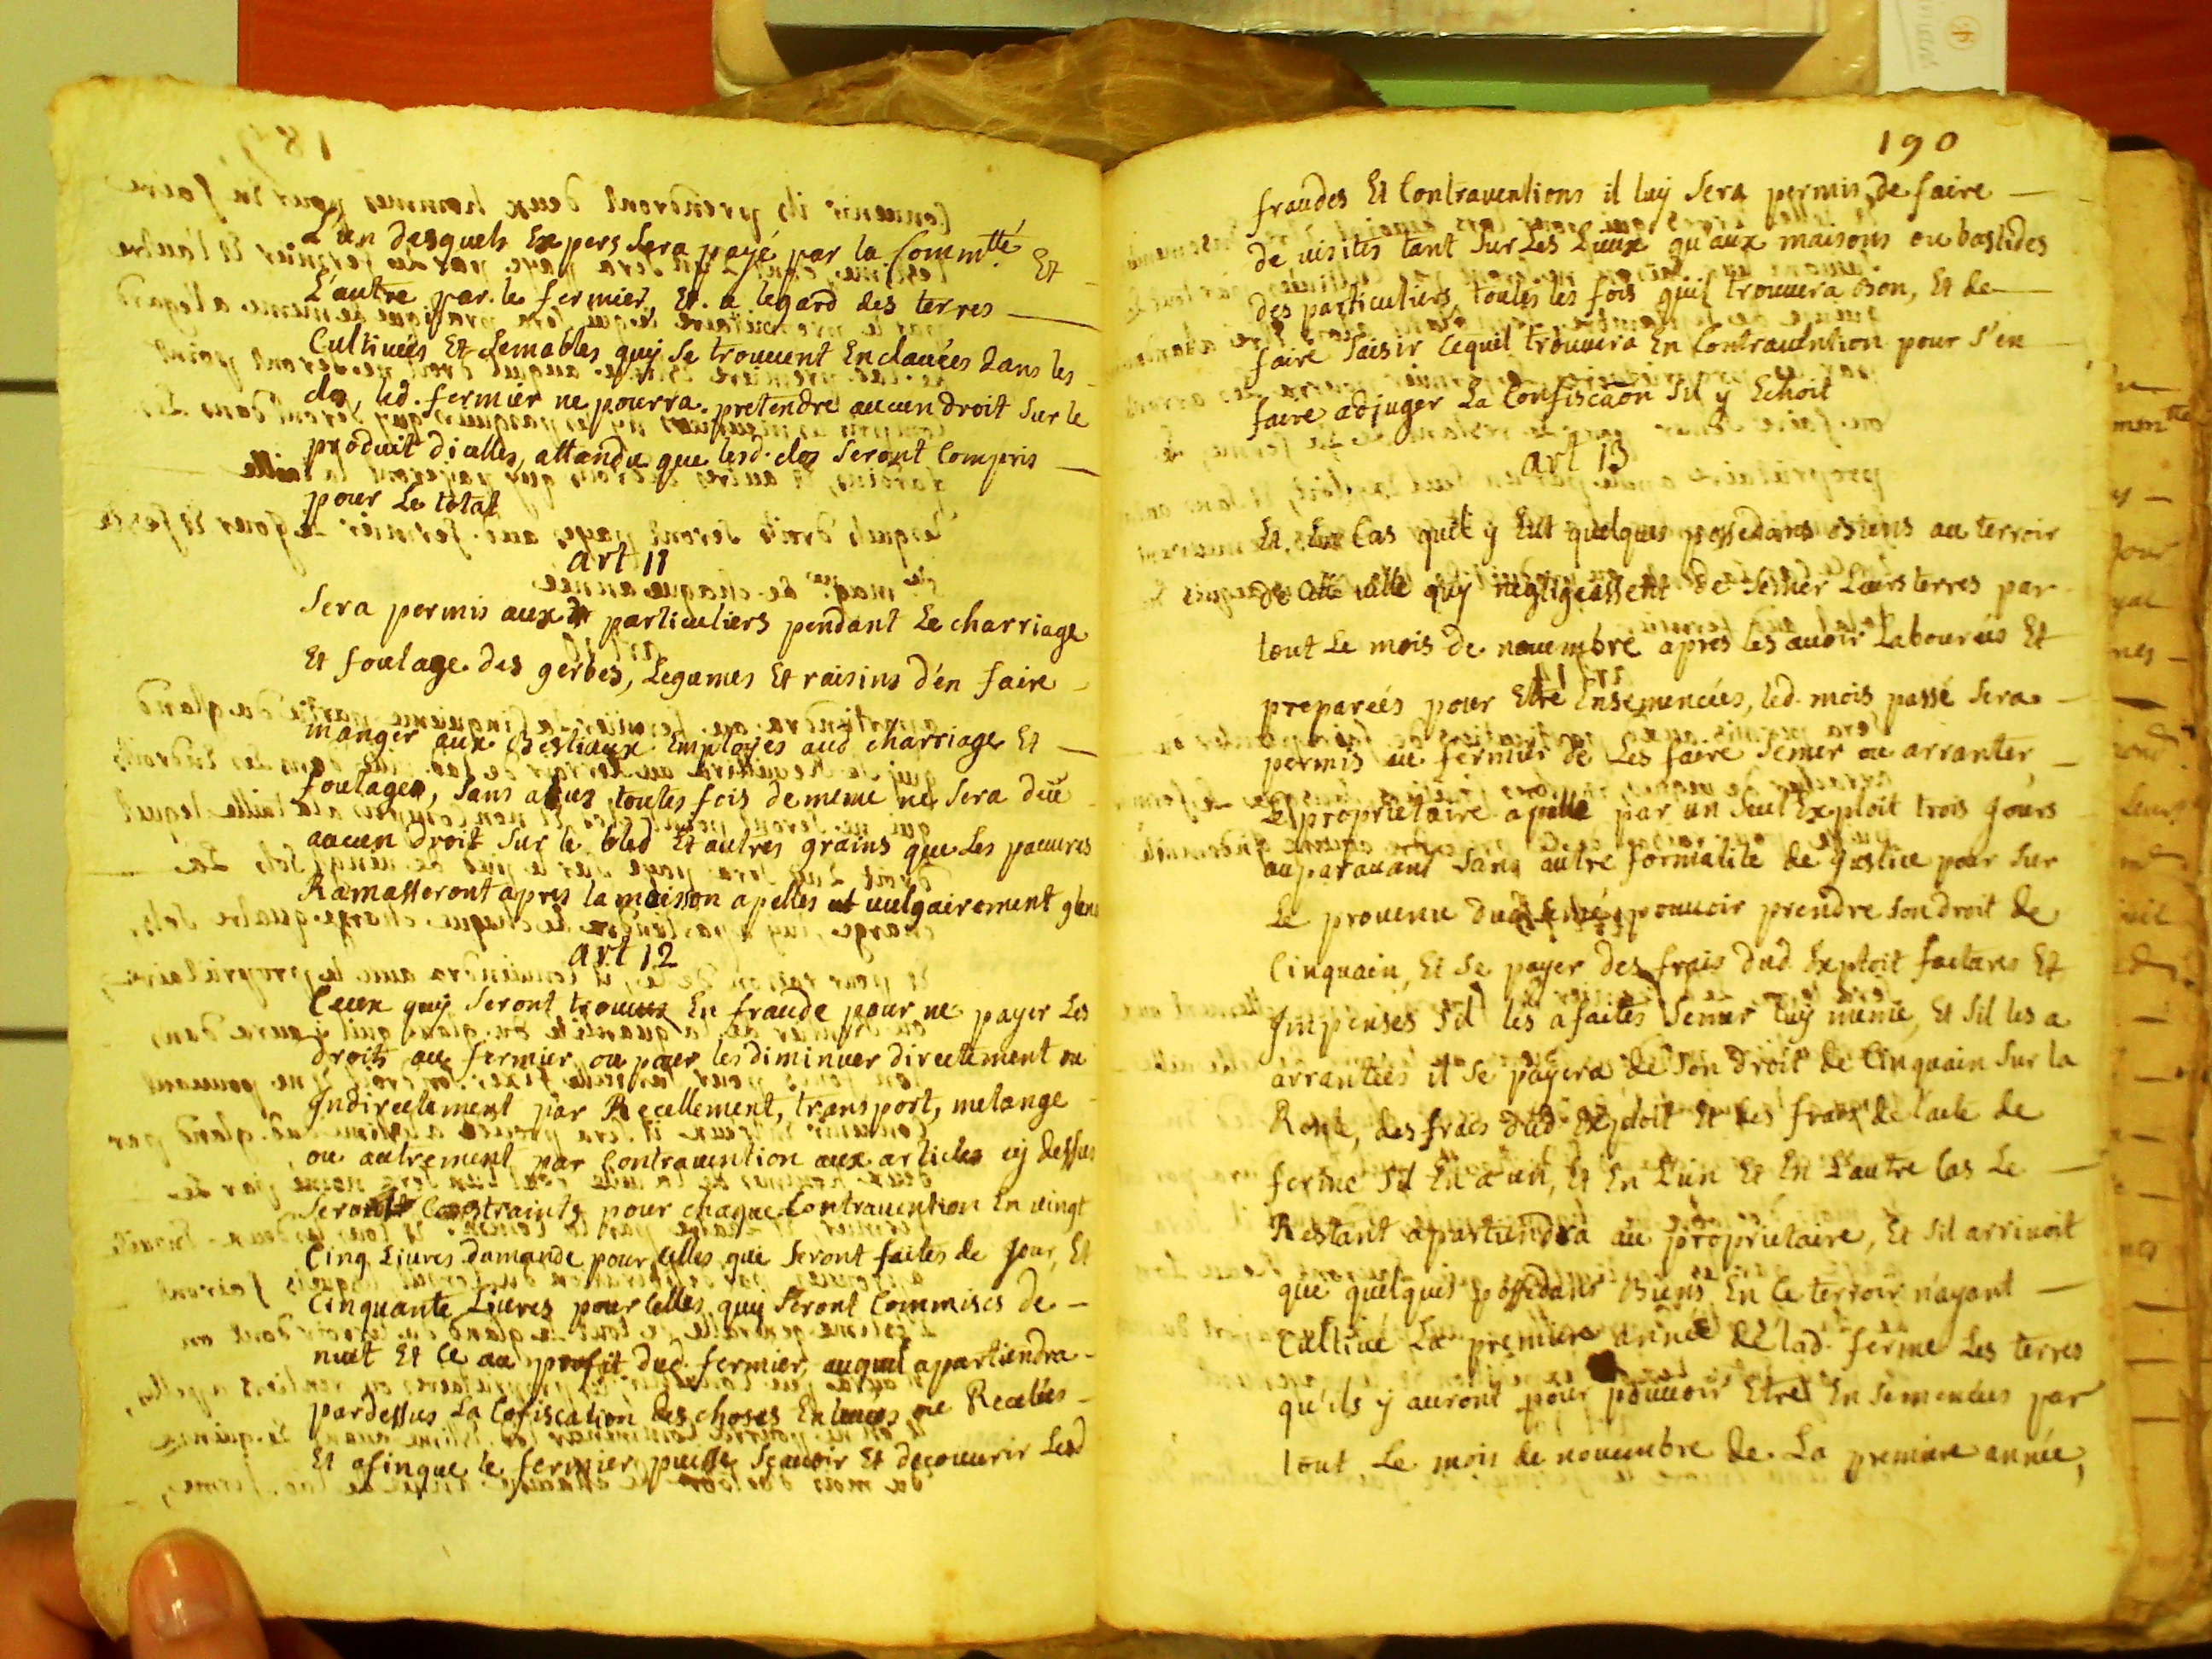 L'un desquels Expers sera payé par la Commtté Et
L'autre par le fermier, Et a legard des terres
Cultiveés Et semables quy se trouvent Enclavées dans les
clos, led. fermier ne pourra pretendre aucun droit sur le
produit dicelles, attandu que lesd. clos seront Compris
pour Le total
art 11
Sera permis aux particuliers pendant Le charriage
Et foulage des gerbes, Legumes Et raisins d'en faire
manger aux Bestiaux Employés aud charriage Et
foulages, sans abus toutes fois de meme ne sera deü
aucun droit sur le bled Et autres grains que Les pauvres
Ramasseront apres la moisson apelles vulgairement glen
art 12
Ceux quy seront trouvés En fraude pour ne payer Les
droits au fermier ou pour les diminuer directement ou
Indirectement par Recellement, transport, melange
ou autrement par Contravention aux articles cy dessus
seront Constraints pour chaque Contravention En vingt
Cinq Livres damande pour celles que seront faites de Jour, Et
Cinquante Livres pour celles quy seront Commises de
nuit Et Ce au profit dud. fermier, auquel apartiendra
pardessus La Cofiscation des choses Enlevées ou Recelées
Et afinque le fermier puisse sçavoir Et decouvrir Lesd
190
fraudes Et Contraventions il luy sera permis de faire
de visites tant sur Les Lieux qu'aux maisons ou bastides
des particuliers toutes les fois quil trouvera Bon, Et de
faire saisir Cequil trouvera En Contravention pour s'en
faire adjuger La Confiscaon sil y Echoit
art 13
Et En Cas quil y Eut quelques possedans Biens au terroir
de cette ville quy negligeassent de semer Leurs terres par
tout Le mois de novembre apres les avoir Labourées Et
preparées pour Etre Ensemencées, led. mois passé sera
permis au fermier de Les faire semer ou arranter
Le proprietaire apellé par un seul Exploit trois Jours
auparavant sans autre formalité de Justice pour sur
Le provenu dud. semé pouvoir prendre son droit de
Cinquain, Et se payer des frais dud. Exploit factures Et
Impenses s'il les a faites semer luy meme, Et sil les a
arrantées il se payera de son droit de Cinquain sur la
Rente, des frais dud. Exploit Et des fraix de l'acte de
ferme sil En a un, Et En L'un Et En L'autre Cas Le
Restant apartiendra au proprietaire, Et sil arrivoit
que quelques possedans Biens En Ce terroir n'ayant
Cultivé La premiere année de lad. ferme Les terres
qu'ils y auront pour pouvoir Etre Ensemencées par
tout Le mois de novembre de La premiere année,